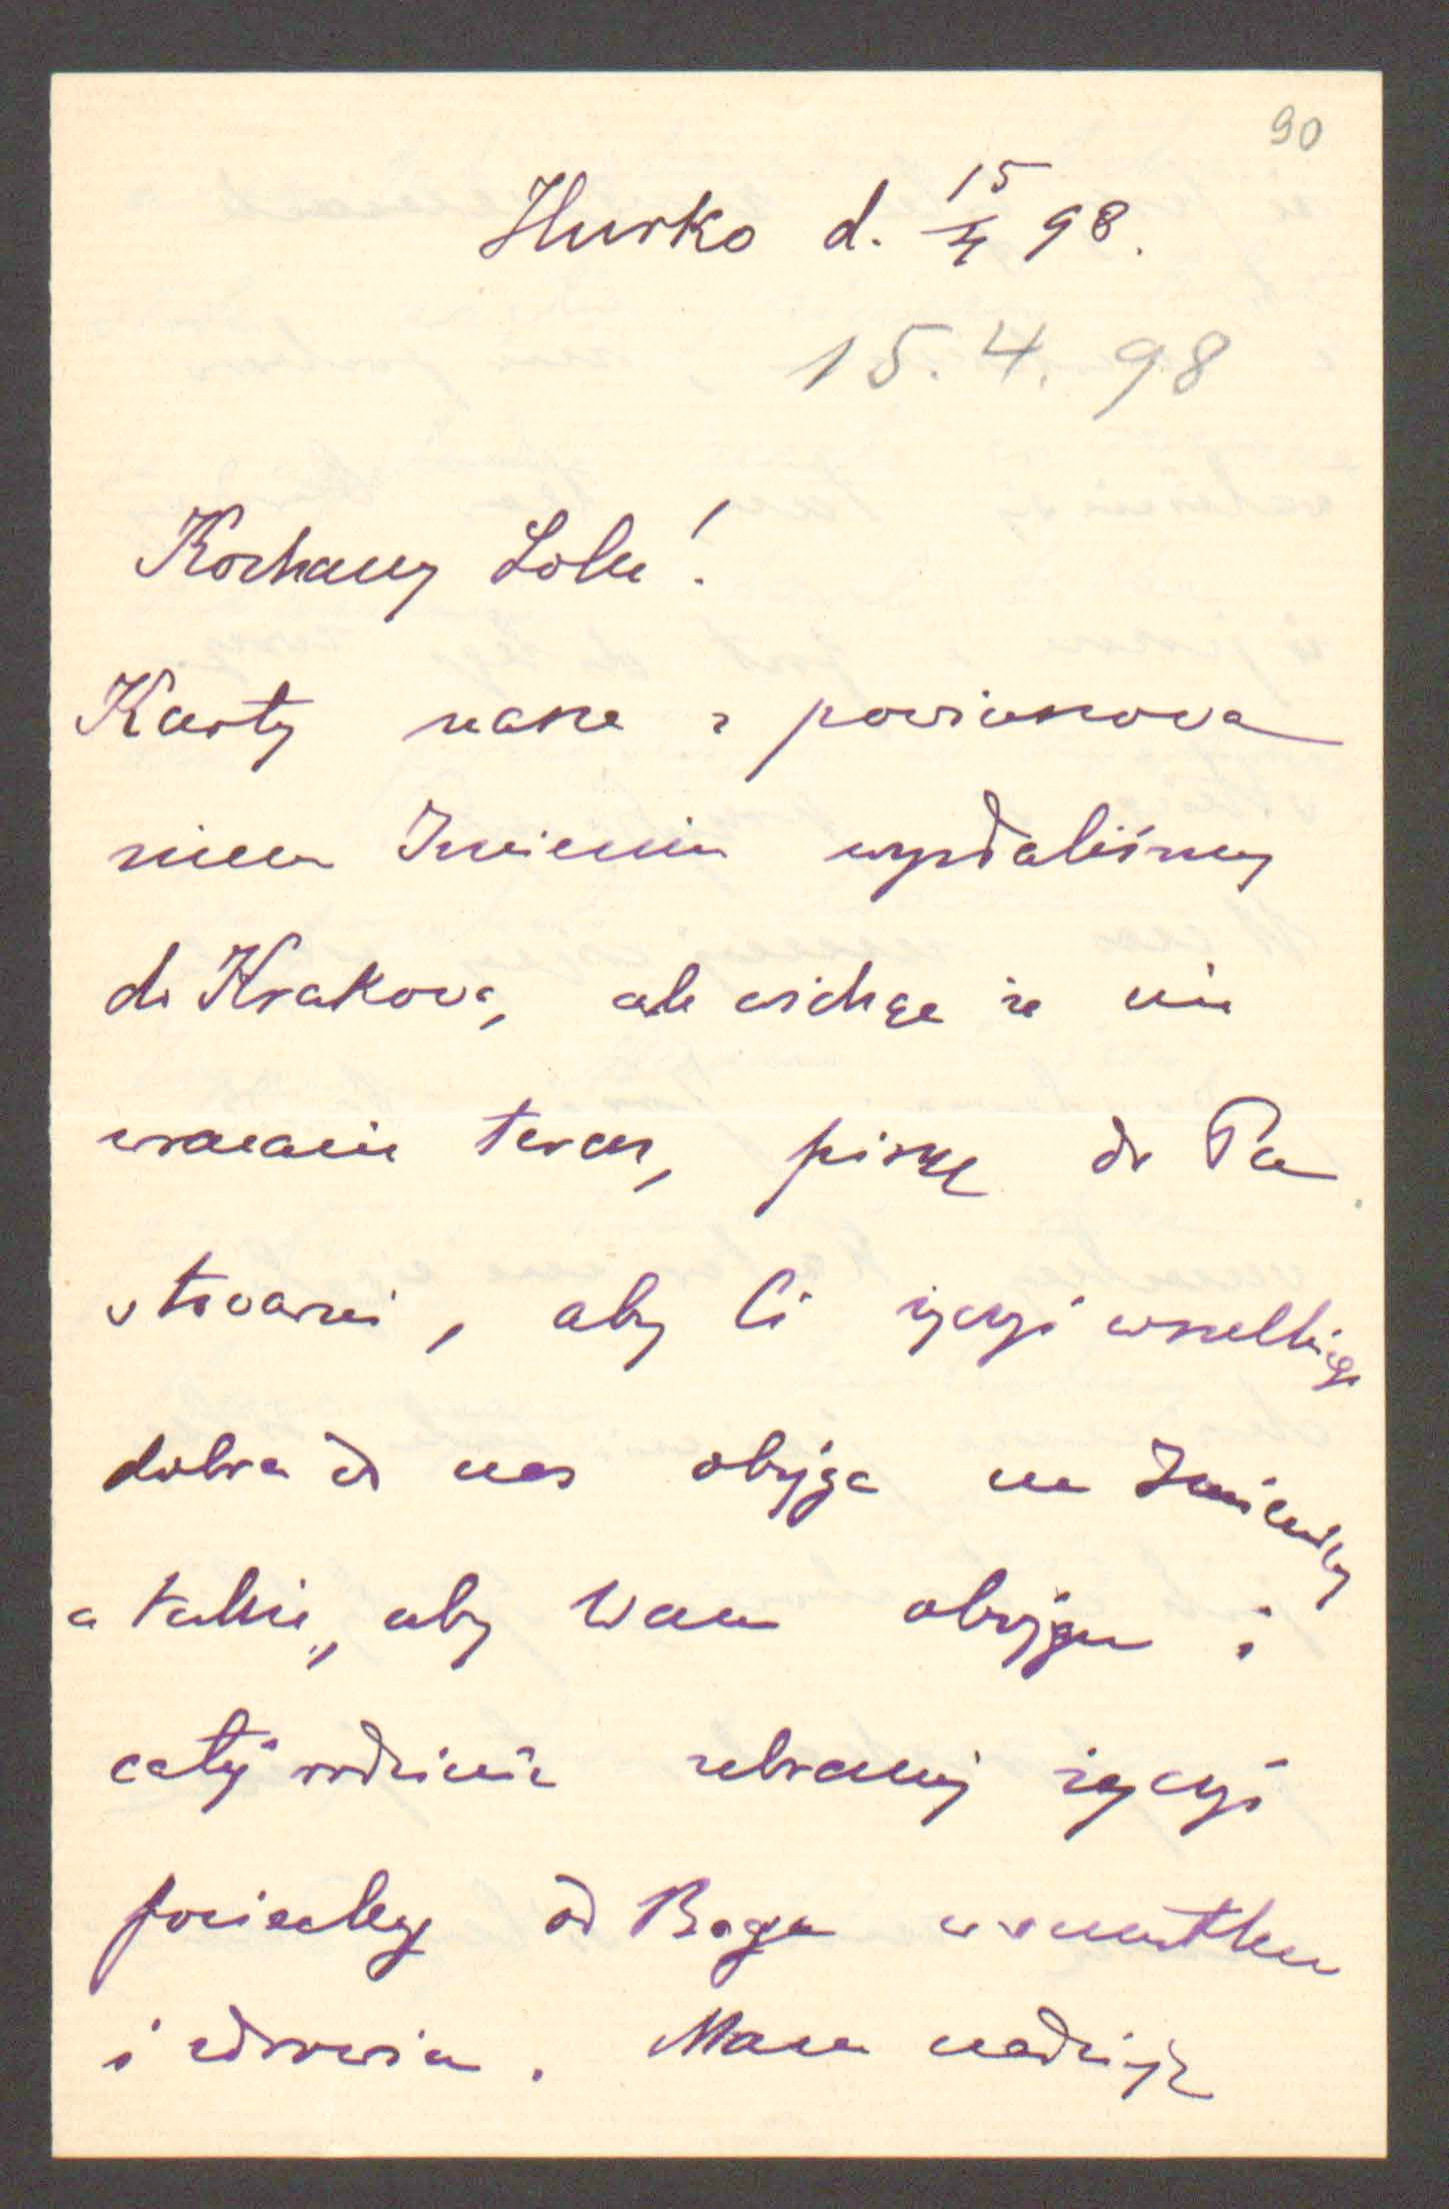 90
Hurko d. 15/4 98.
15. 4. 98
Kochany Lolu!
Karty nasze z powinszowa
niem Imienin wysłaliśmy
do Krakowa, ale widzę że nie
wracacie teraz, piszę do Pa
, aby Ci życzyć wszelkiego
dobra od nas obojga na Imieniny
a także, aby Wam obojgu i
całej rodzinie zebranej życzyć
pociechy od Boga w smutku
i zdrowia. Mam nadzieję